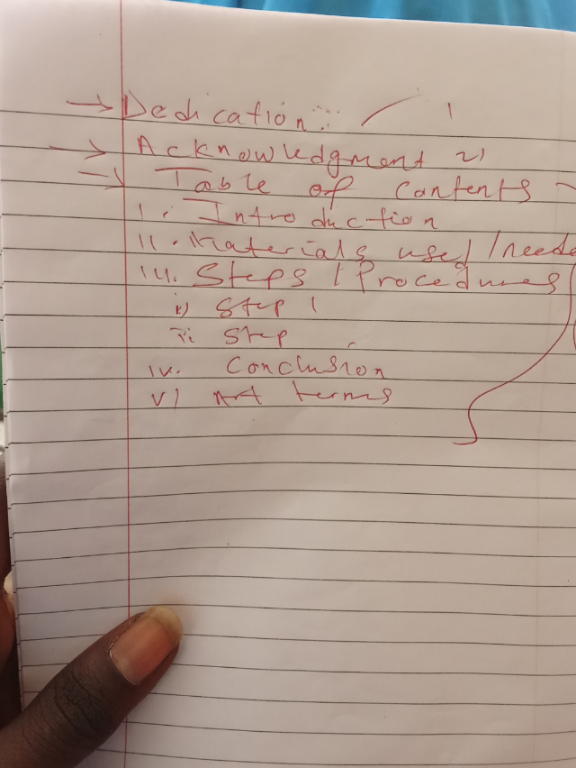 → Dedication ∴ 1
→ Acknowledgment 2)
→ Table of Contents
i. Introduction
ii. Materials used /neede
iii. Steps / Procedures
i) Step 1
ii Step
iv. Conclusion
v) Art terms